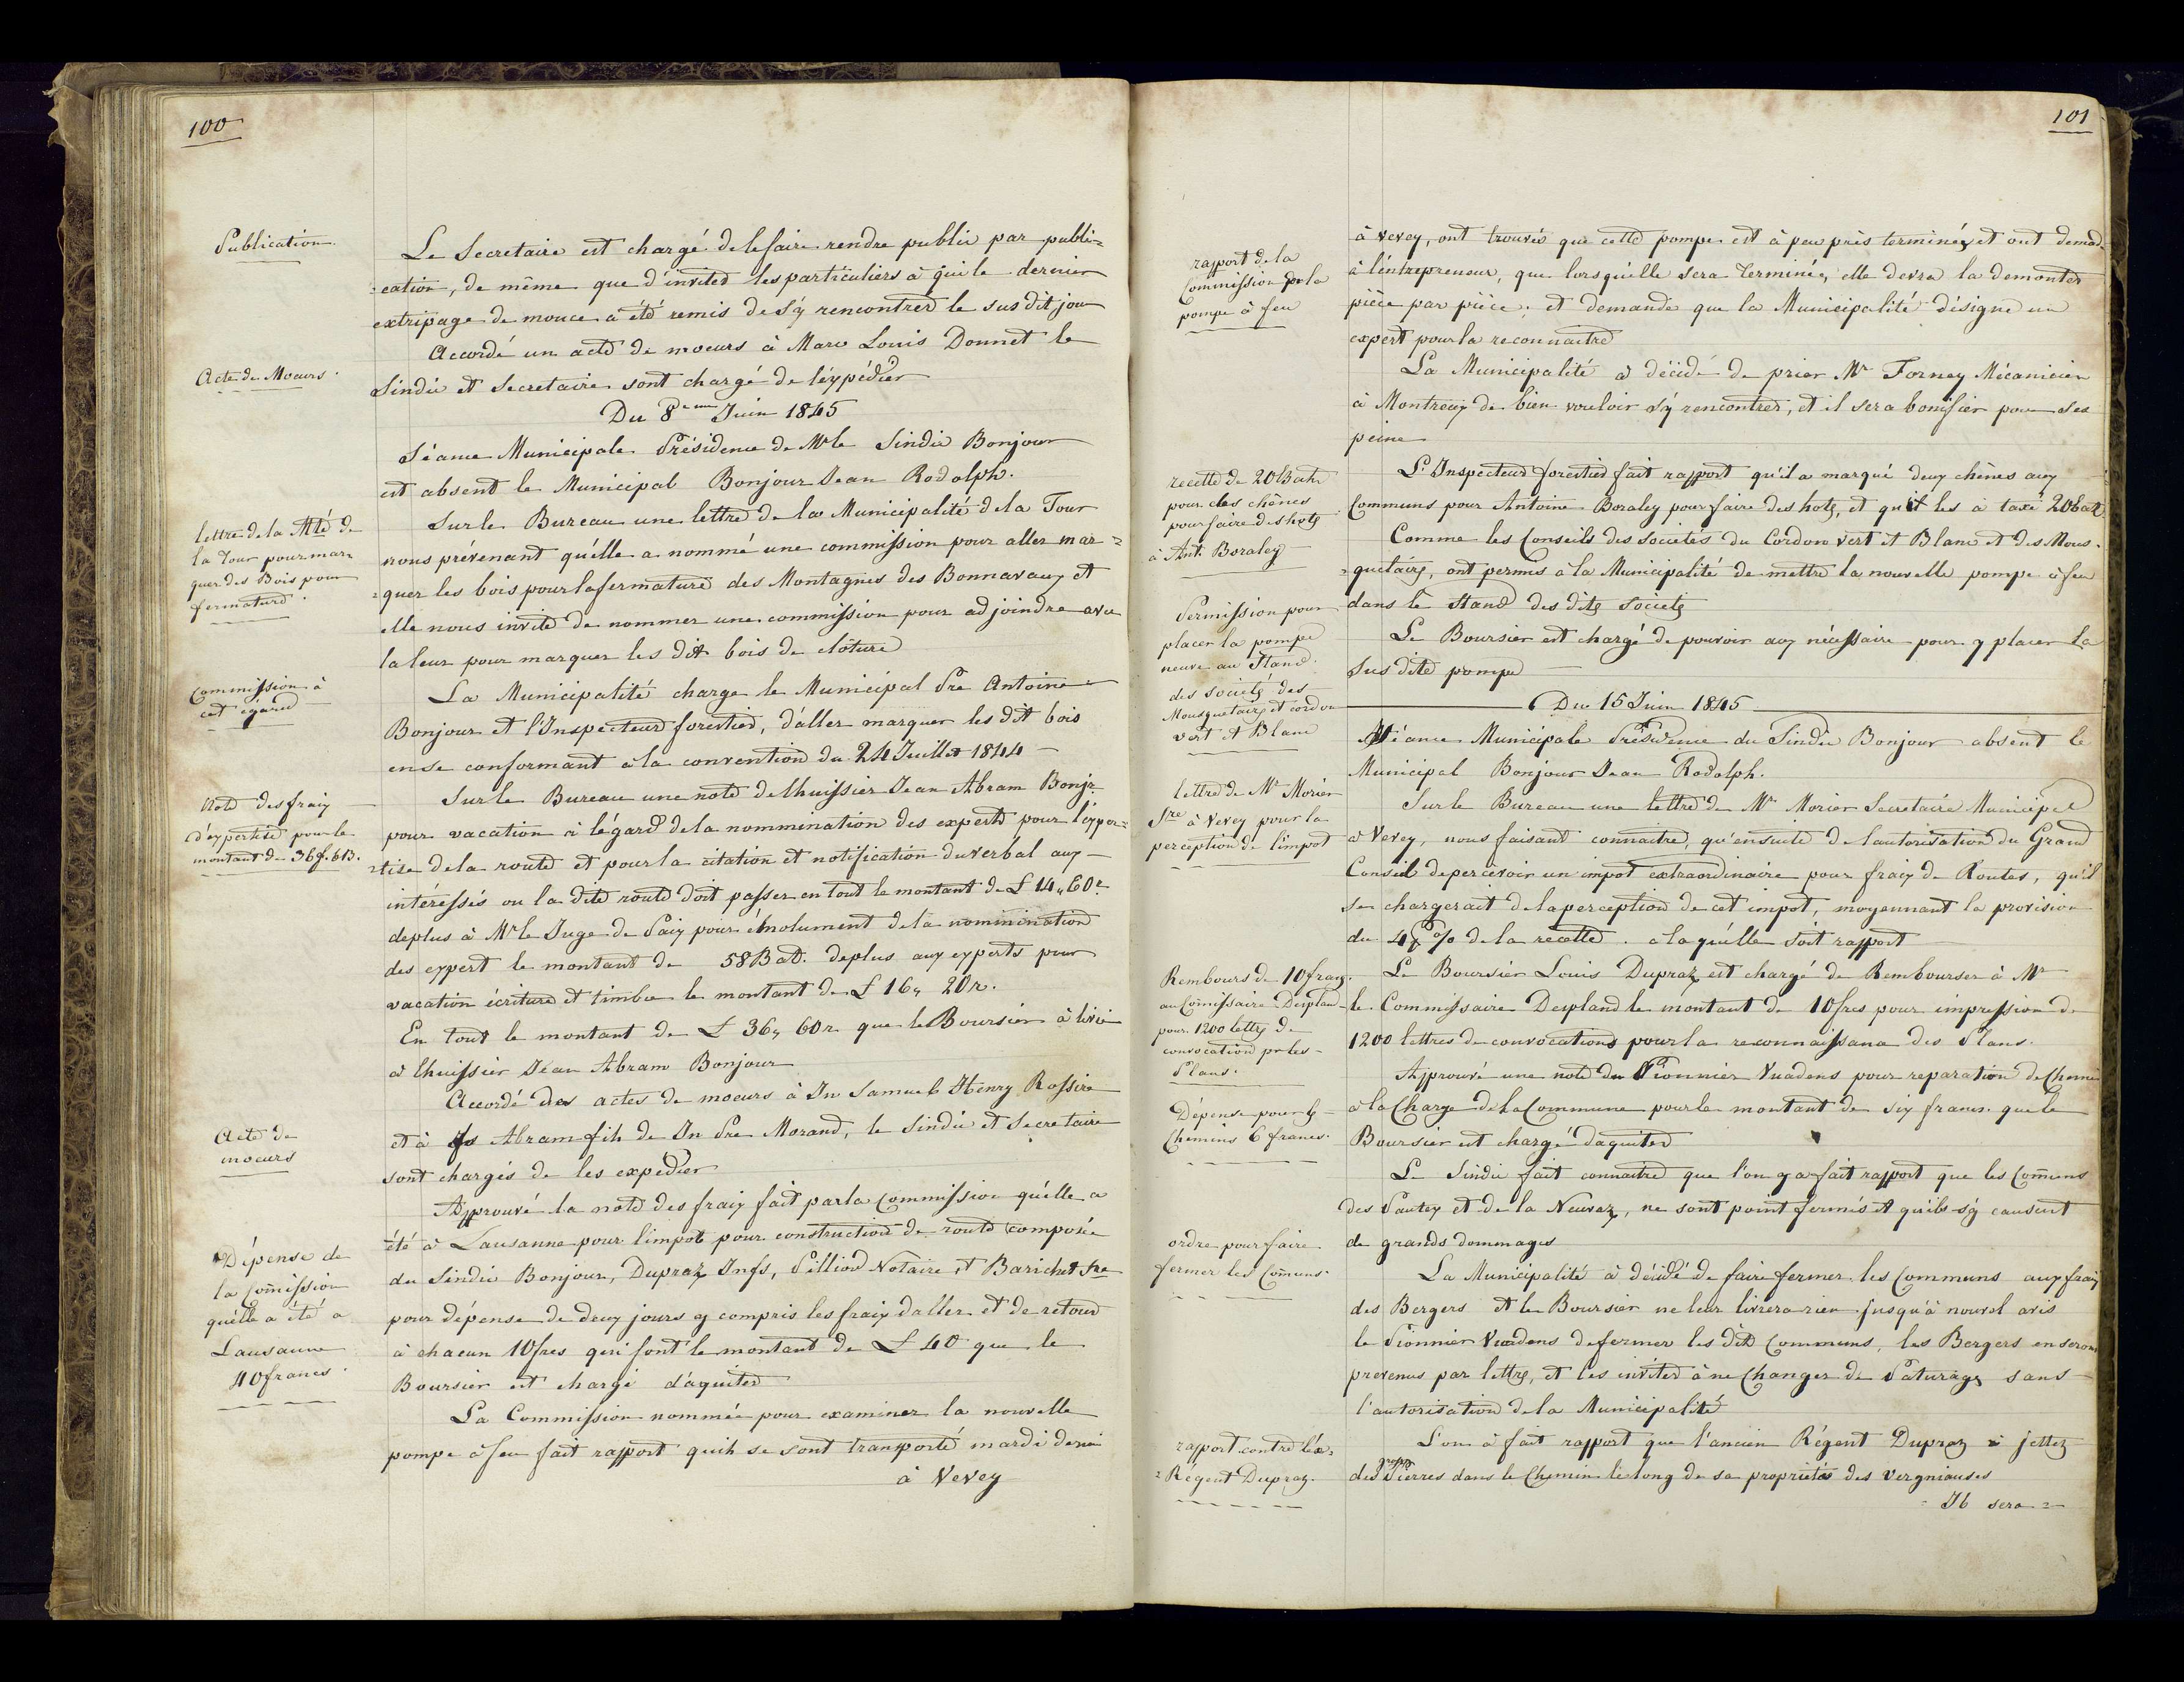 100
Publication
Le Secretaire est chargé de le faire rendre public par publi=
=cation, de même que d'invited les particuliers à qui le dernier
extripage de mouce a été remis de s'y rencontrer le sus dit jour
Acte de Moeurs.
Accordé un acte de moeurs à Marc Louis Donnet le
Sindic et Secretaire sont chargé de l'éxpédier
Du 8eme Juin 1845
Séance Municipale Présidence de Mr le Sindic Bonjour
est absent le Municipal Bonjour Jean Rodolph.
lettre de la Mté de
la Tour pour mar=
quer des Bois pour
fermature.
Sur le Bureau une lettre de la Municipalité de la Tour
nous prévenant qu'élle a nommé une commission pour aller mar=
=quer les bois pour la fermature des Montagnes des Bonnavaux et
elle nous invite de nommer une commission pour adjoindre avec
la leur pour marquer les dit bois de clôture
Commission à
cet égard
La Municipalité charge le Municipal Fre Antoine
Bonjour et l'Inspecteur forestier, d'aller marquer les dit bois
en se conformant à la convention du 24 Juillet 1844
Note des fraix
d'éxpertise pour le
montant de 36 f. 6 B.
Sur le Bureau une note de l'huissier Jean Abram Bonjr
pour vacation à l'égard de la nommination des experts pour l'éxper=
=tise de la route et pour la citation et notification du verbal aux
intéressés ou la dite route doit passer en tout le montant de £ 14,, 60r
deplus à Mr le Juge de Paix pour émolument de la nommination
des expert le montant de 58 Bat. deplus aux experts pour
vacation écriture et timbre le montant de £ 16,, 20 r.
En tout le montant de £ 36,, 60 r que le Boursier à livré
à l'huissier Jean Abram Bonjour
Acte de
moeurs
Accordé des actes de moeurs à Jn Samuel Henry Rossire
et à Js Abram fils de Jn Fre Morand, le Sindic et Secretaire
sont chargés de les expédier
Dépense de
la Comission
qu'élle a été a
Lausanne
40 francs.
Approuvé la note des fraix fait par la Commission qu'élle a
été à Lausanne pour l'impot pour construction de route composée
du Sindic Bonjour, Dupraz Jn fs, Pilliod Notaire et Barichet Sre
pour dépense de deux jours y compris les fraix d'aller et de retour
à chacun 10 frcs qui font le montant de £ 40 que le
Boursier est chargé d'aquiter
La Commission nommée pour examiner la nouvelle
pompe à feu fait rapport qu'ils se sont transporté mardi dernier
à Vevey
101
rapport de la
Commission pr la
pompe à feu
à Vevey, ont trouvés que cette pompe est à peu près terminée et ont demad.
à l'entrepreneur, que lorsqu'élle sera terminée, elle devra la demonter
pièce par pièce; et demande que la Municipalité désigne un
expert pour la reconnaitre
La Municipalité à décidé de prier Mr Forney Mécanicien
à Montreux de bien vouloir s'y rencontrer, et il sera bonifier pour ses
peine
recette de 20 Batz
pour des chênes
pour faire des hotes
à Ant. Boraley
L'Inspecteur forestier fait rapport qu'il a marqué deux chênes aux
Communs pour Antoine Boraley pour faire des hotes, et qu'il les a taxé 20 batz
Permission pour
placer la pompe
neuve au Stand.
des societés des
Mousquetaires et cordon
vert et Blanc
Comme les Conseils des societés du Cordon vert et Blanc et des Mous=
=quetaires, ont permis a la Municipalité de mettre la nouvelle pompe à feu
dans le Stand des dites Societés
Le Boursier est chargé de pouvoir aux nécessaire pour y placer la
Sus dite pompe
Du 15 Juin 1845
Séance Municipale Présidence du Sindic Bonjour absent le
Municipal Bonjour Jean Rodolph.
lettre de Mr Morier
Sre à Vevey pour la
perception de l'impot
Sur le Bureau une lettre de Mr Morier Secretaire Municipal
à Vevey, nous faisant connaitre, qu'ensuite de l'autorisation du Grand
Conseil de percevoir un impot extraordinaire pour fraix de Routes, qu'il
se chargerait de la perception de cet impot, moyennant la provision
du 4 % de la recette. a laquélle soit rapport
Rembours de 10 francs.
au Comissaire Despland
pour 1200 lettres de
convocation pr les
Plans.
Le Boursier Louis Dupraz est chargé de Rembourser à Mr
le Commissaire Despland le montant de 10 frcs pour impression de
1200 lettres de convocations pour la reconnaissance des Plans.
Dépense pour les
Chemins 6 francs.
Approuvé une note du Pionnier Vuadens pour reparation de Chemins
à la Charge de la Commune pour le montant de six francs que le
Boursier est chargé d'aquiter
Le Sindic fait connaitre que l'on y a fait rapport que les Comuns
des Pautex et de la Neuvaz, ne sont point fermés et qu'ils s'y causent
de grands dommages
ordre pour faire
fermer les Comuns.
La Municipalité à décidé de faire fermer les Communs aux fraix
des Bergers et le Boursier ne leur livrera rien jusqu'à nouvel avis
le Pionnier Vuadens de fermer les dits Communs, les Bergers en seront
prevenus par lettre, et les inviter à ne Changer de Paturages sans
l'autorisation de la Municipalité
rapport contre l'éx=
=Régent Dupraz.
L'on à fait rapport que l'ancien Régent Dupraz à jettez
des Pierres dans le Chemin le long de sa propriétés des Vergniauses
Il sera=